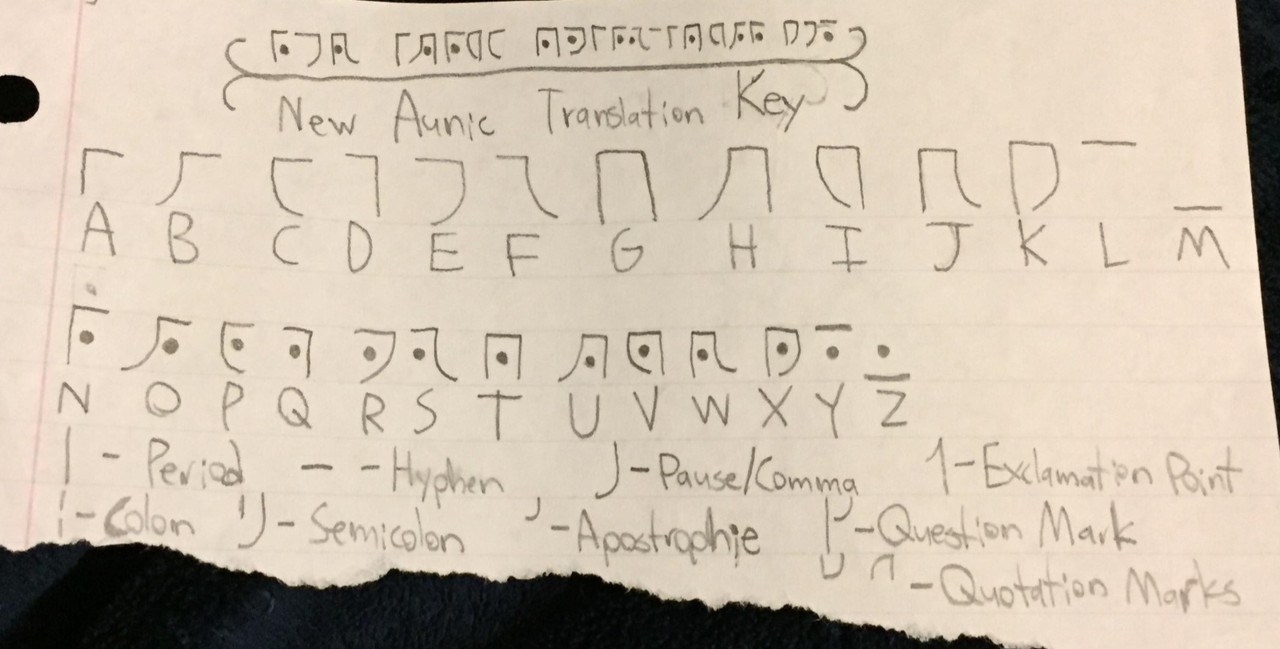 New Aunic Translation Key
A B C D E F G H I J K L M
N O P Q R S T U V W X Y Z
- Period - Hyphen - Pause/Comma - Exclamation Point
- Colon - Semicolon - Apostrophie - Question Mark
- Quotation Marks